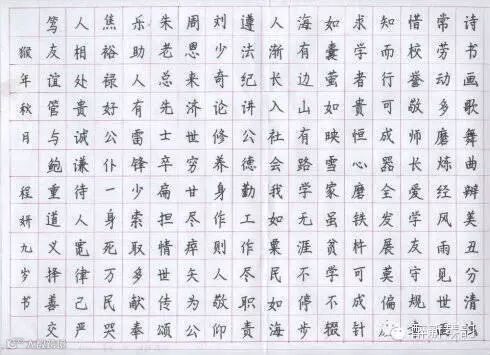 诗书画歌舞曲辫美丑分清
常劳动多磨炼经风雨见世
惜校誉敬师长爱学友守规
知而行可成器全发展莫偏
求学者贵恒心磨铁杵可成针
如囊萤如映雪家虽贫学不辍
海有边山有路学无涯不停步
人渐长入社会我如粟民如海
遵法纪讲公德勤工作尽职责
刘少奇论修养身作则人敬仰
周恩来济世穷甘尽瘁矢为公
朱老总先士卒扁担情世传颂
乐助人有雷锋少索取多献奉
焦裕禄好公仆一身死万民哭
人相处贵诚谦待人宽律己严
笃友谊管与鲍重道义择善交
猴年秋月 程妍九岁书